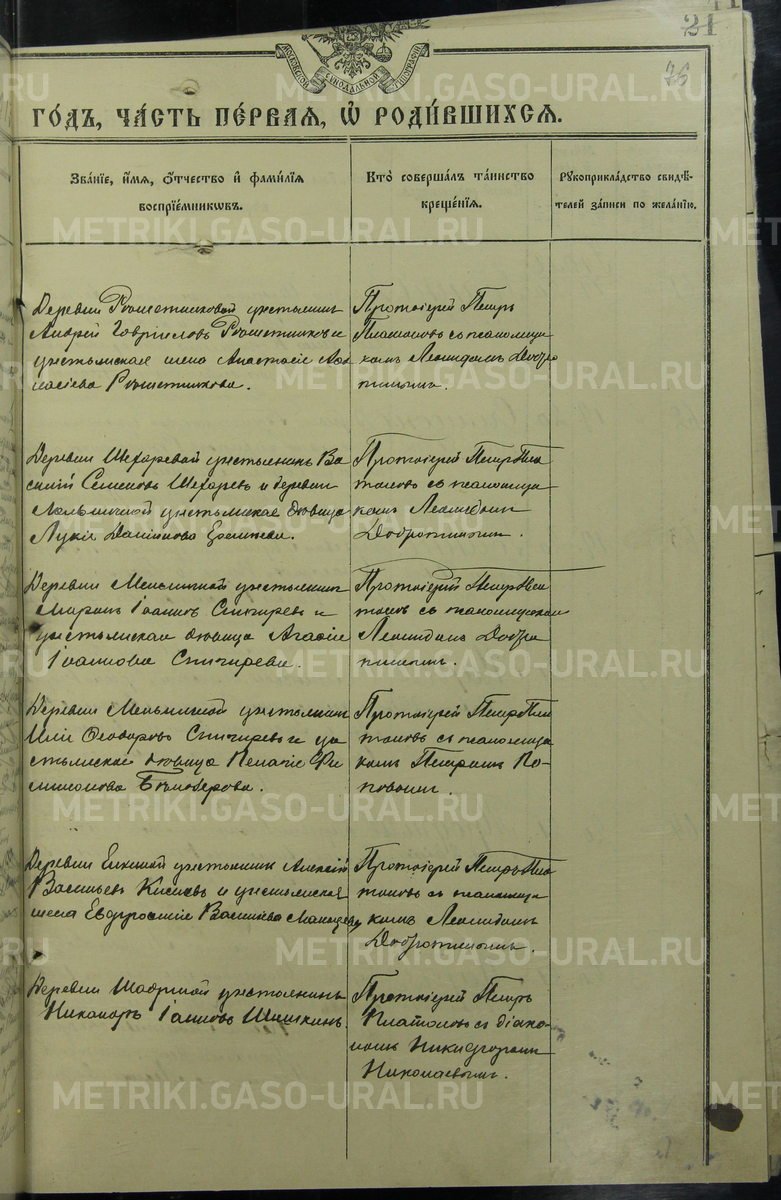 21
76
МОСКОВСКОЙ СѴНОДАЛЬНОЙ ТИПОГРАФІИ
ГОДЪ, ЧАСТЬ ПЕРВАЯ, Ѡ РОДИВШИХСЯ.
Званіе, имя, отчество и фамилія
воспріемниковъ.
Кто совершалъ таинство
крещенія.
Рукоприкладство свидѣ-
телей записи по желанію.
Деревни Рѣшетниковой крестьянинъ
Андрей Гавриловъ Рѣшетниковъ и
крестьянская жена Анастасія
Рѣшетникова.
Протоіерей Петръ
Платоновъ съ псаломщи
комъ Леонидомъ Добро
тинымъ.
Деревни Шехаревой крестьянинъ Ва
силій Семеновъ Шехаревъ и деревни
крестьянская дѣвица
Лукія Даніилова
Протоіерей Петръ Пла
тоновъ съ псаломщи
комъ Леонидомъ
Добротинымъ.
Деревни Мельничной крестьянинъ
Миронъ Іоанновъ Снигиревъ и
крестьянская дѣвица Агафія
Іоаннова Снигирева.
Протоіерей Петръ Пла
тоновъ съ псаломщикомъ
Леонидомъ Добро
тинымъ.
Деревни Мельничной крестьянинъ
Илія Ѳеодоровъ Снигиревъ и кре
стьянская дѣвица Пелагія Фи
лимонова
Протоіерей Петръ Пла
тоновъ съ псаломщи
комъ Петромъ По-
повымъ.
Деревни крестьянинъ Алексій
Васильевъ и крестьянская
жена Евфросинія Васильева
Протоіерей Петръ Пла
тоновъ съ псаломщи
комъ Леонидомъ
Добротинымъ.
Деревни крестьянинъ
Никаноръ Іоанновъ Шишкинъ.
Протоіерей Петръ
Платоновъ съ діако-
номъ Никифоромъ
Николаевымъ.
METRIKI.GASO-URAL.RU